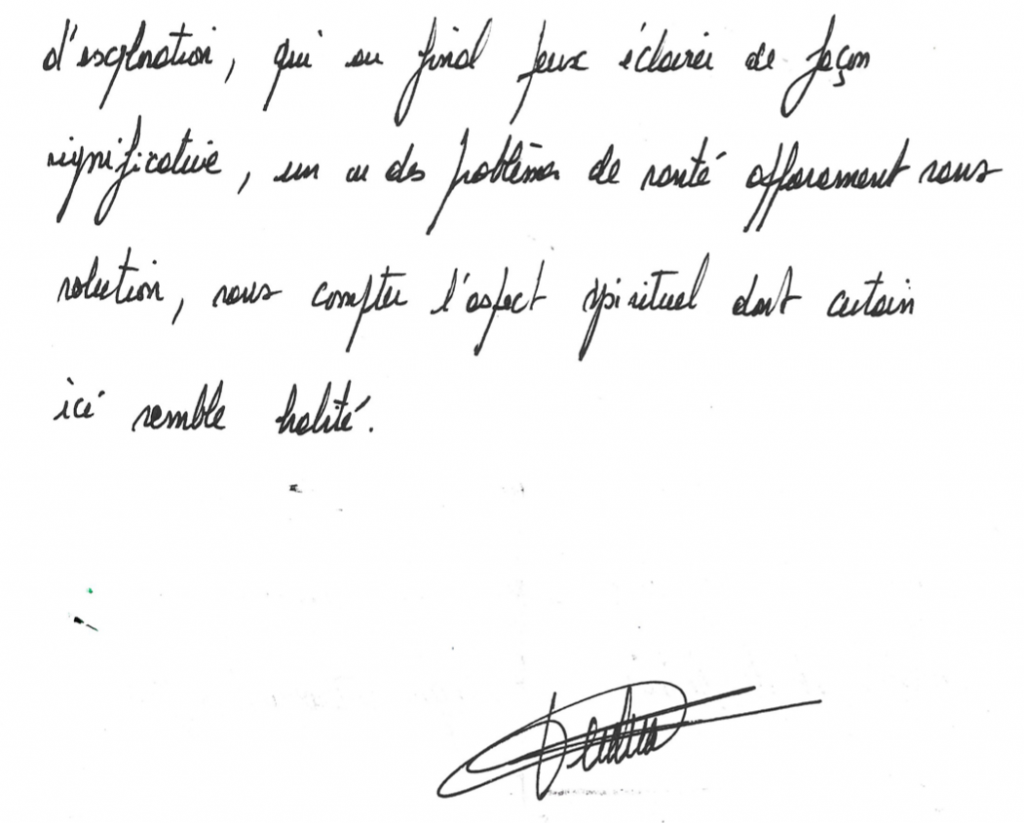 d'exploration, qui au final peux éclairer de façon
significative, un ou des problèmes de santé apparemment sans
solution, sans compter l'aspect spirituel dont certain
ici semble habité.